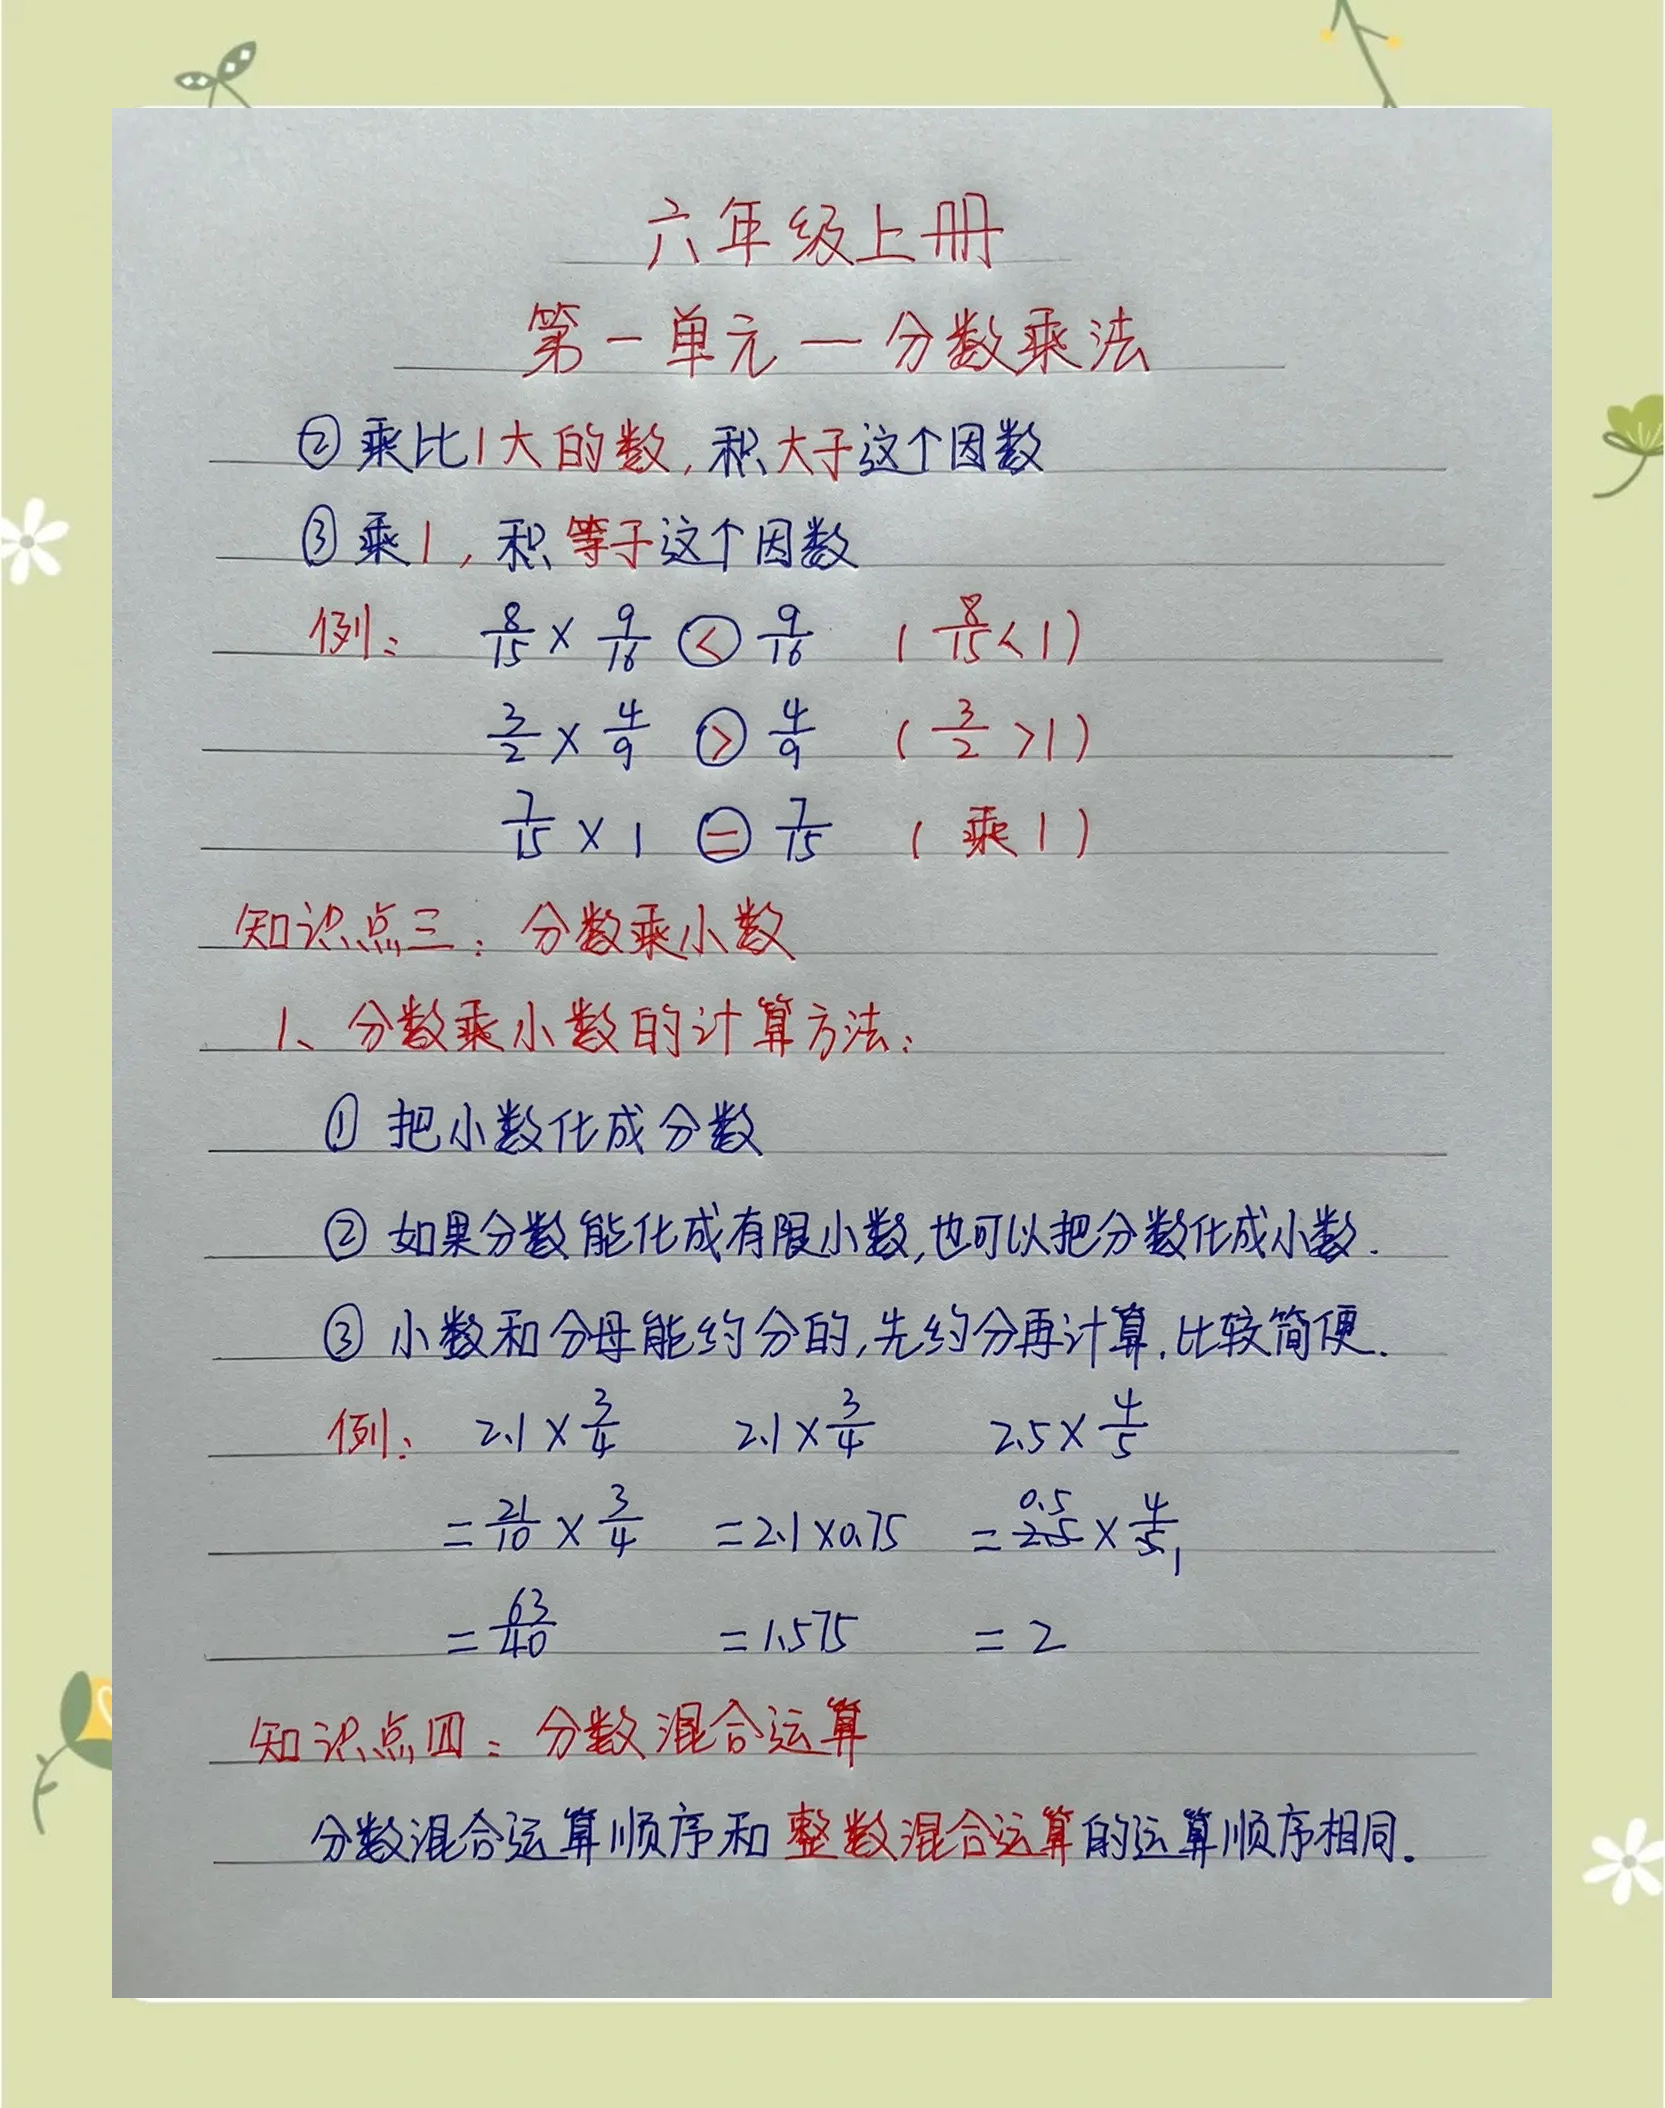 六年级上册
第一单元—分数乘法
②乘比1大的数,积大于这个因数
③乘1,积等于这个因数
例: 8/15 × 9/16 < 9/16 (8/15<1)
3/2 × 4/9 > 4/9 (3/2>1)
7/15 × 1 = 7/15 (乘1)
知识点三:分数乘小数
1、分数乘小数的计算方法:
①把小数化成分数
②如果分数能化成有限小数,也可以把分数化成小数.
③小数和分母能约分的,先约分再计算.比较简便.
例: 2.1×3/4 2.1×3/4 2.5×4/5
=21/10×3/4 =2.1×0.75 =2.5 0.5×4/5 1
=63/40 =1.575 =2
知识点四:分数混合运算
分数混合运算顺序和整数混合运算的运算顺序相同.